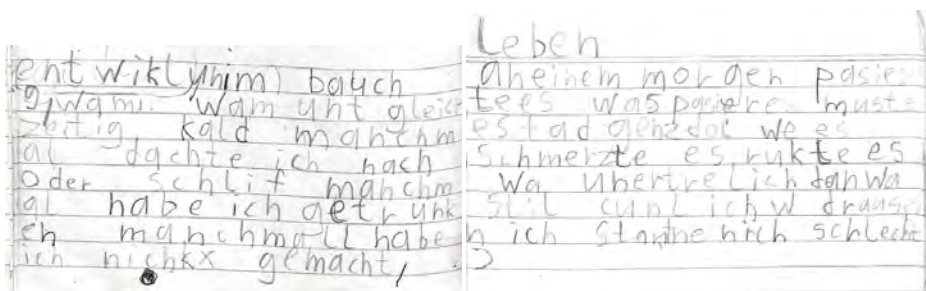 entwiklunim bauch
wam wam unt gleich
zeitig kald manchm
al dachte ich nach
oder schlif manchm
al habe ich getrunk
en manchmall habe
ich nichkx gemacht,
Leben
aneinem morgen pasier
tees was pasiere muste
es tad we es
schmerzte es rukte es
wa
stil ich
n ich schlecht